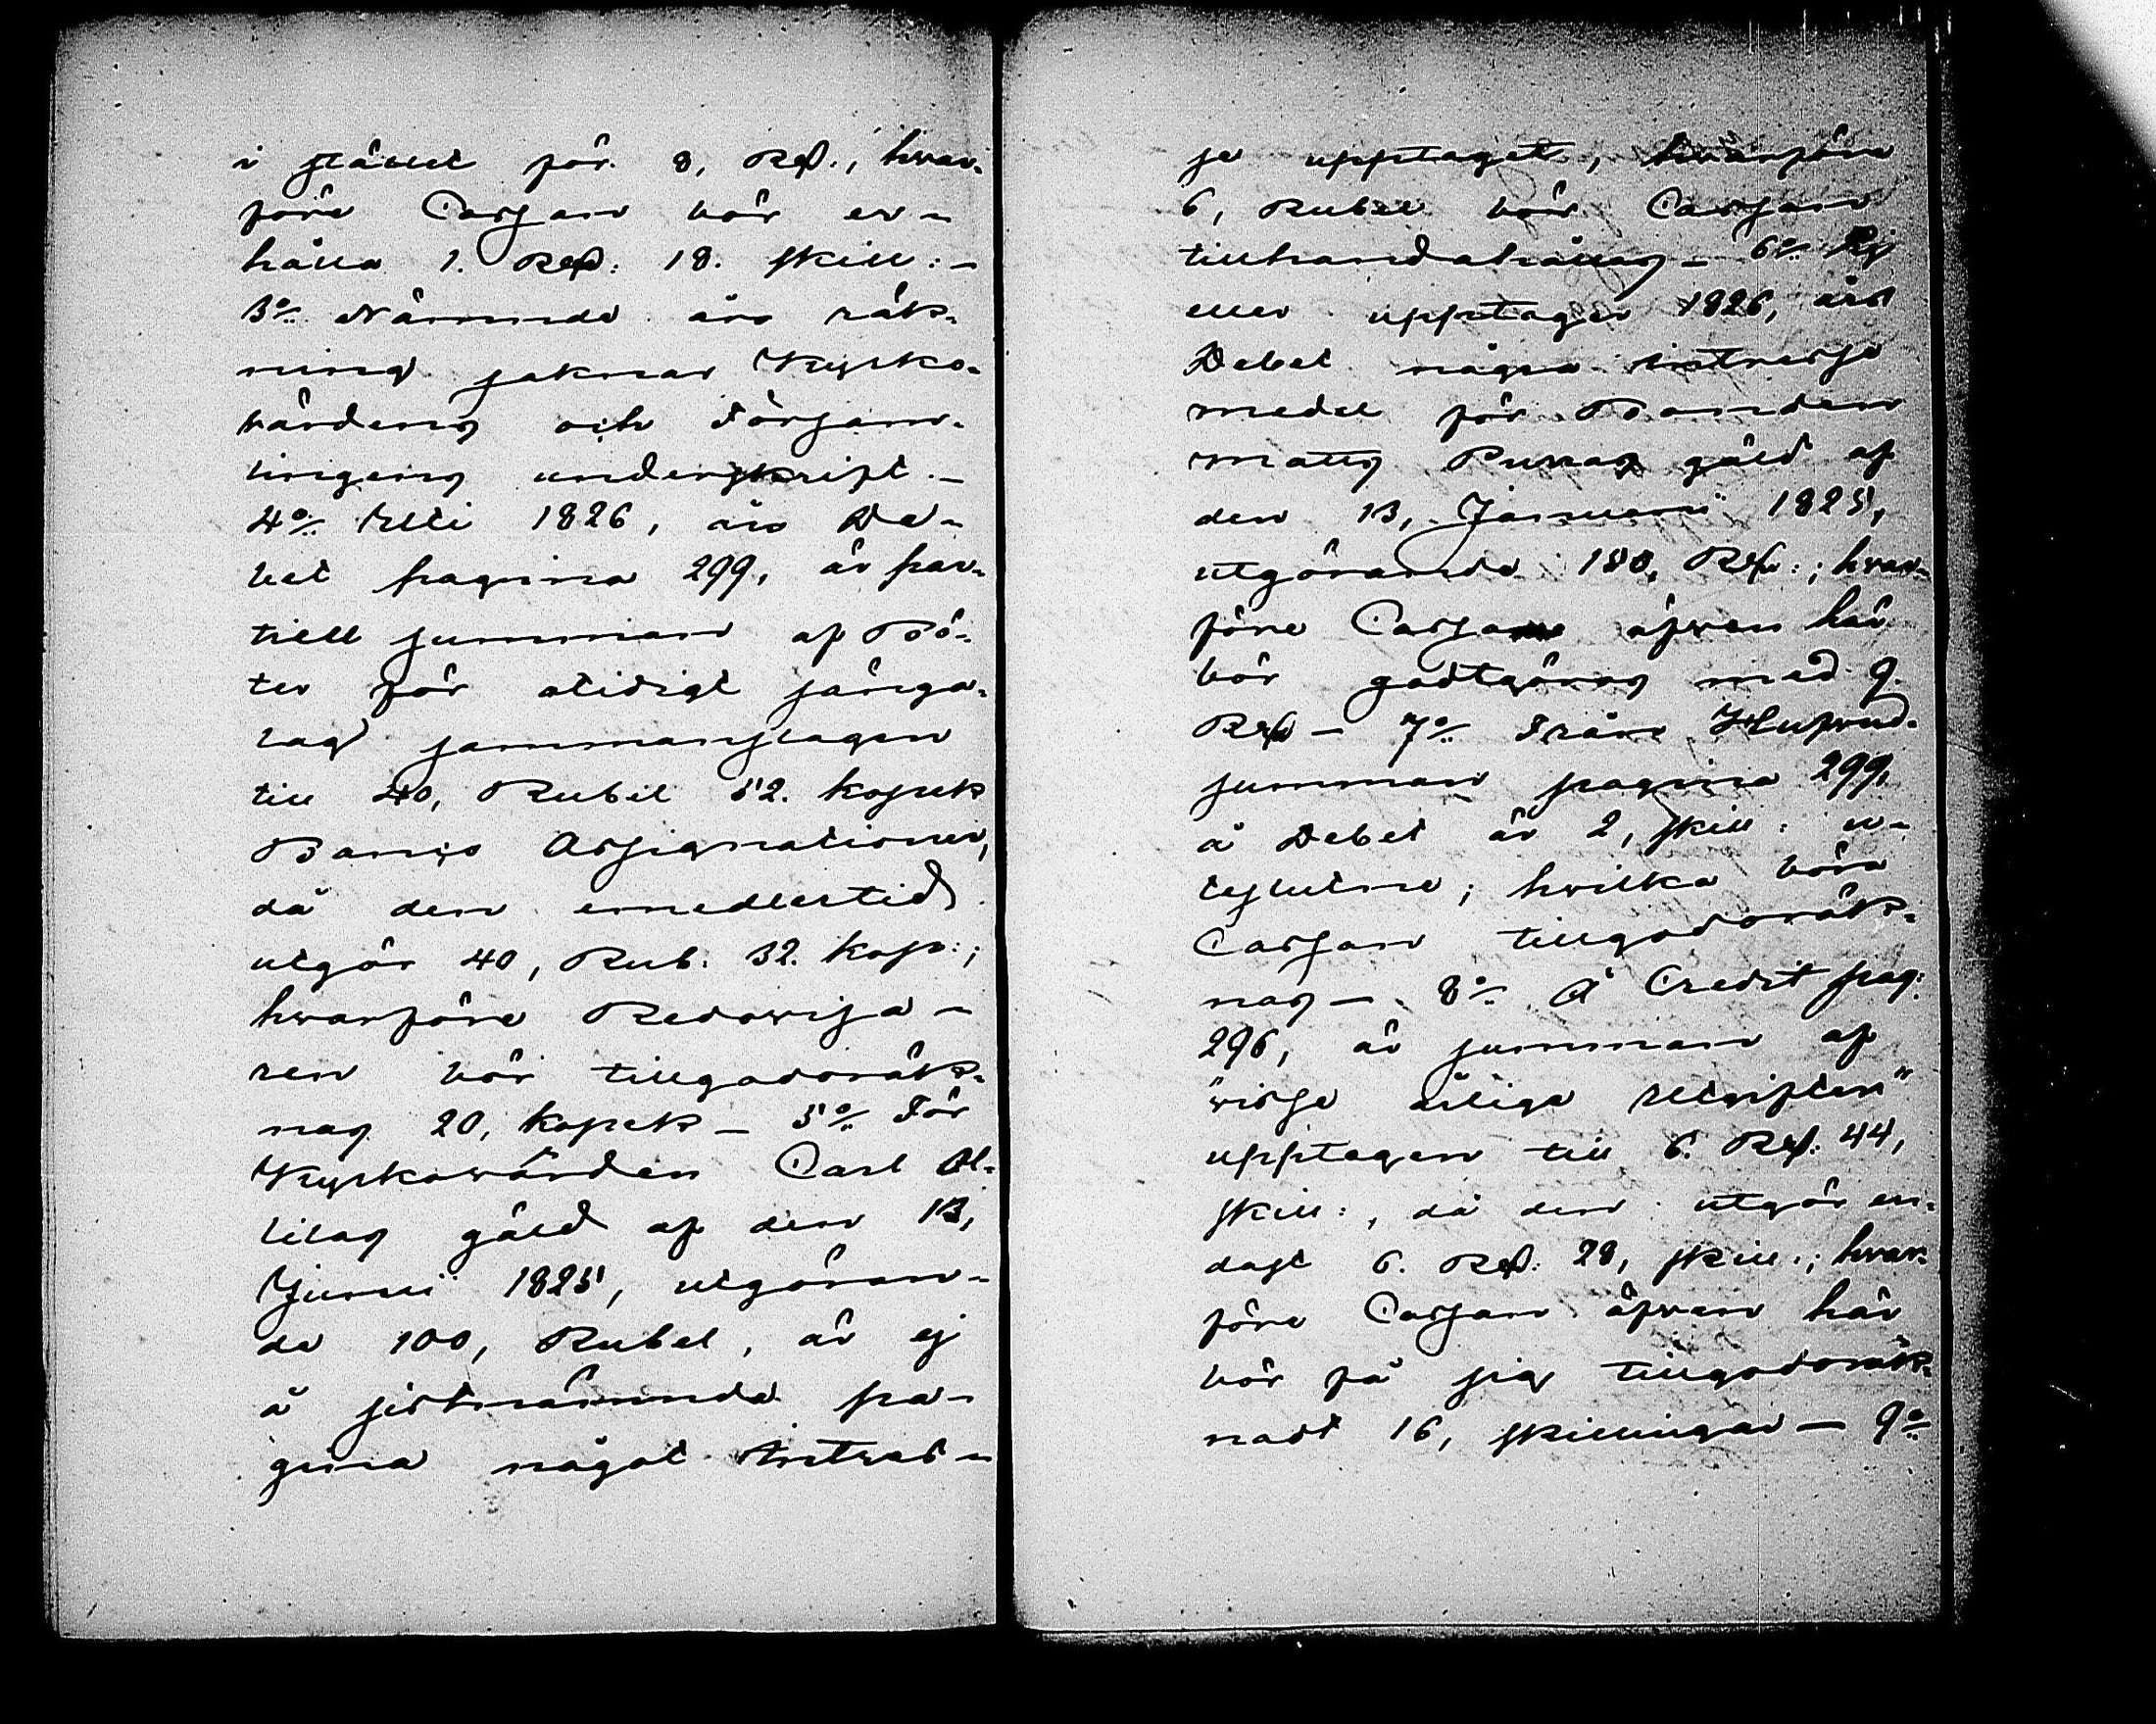 i stället för 8, Rd.; hvar-
före Cassan bör er-
hålla 1. Rd: 18. skill:–
3:o Nämnde års räk-
ning saknar Kyrko-
värdens och Församl-
lingens underskrift.–
4:o Uti 1826, års De-
bet pagina 299, är par-
tiell summan af Bö-
ter för otidigt sänga-
lag sammanslagen
till 40, Rubel 52. kopek
Banco Assignationer,
då den emedlertid
utgör 40, Rub. 32. kop:;
hvarföre Redovisa-
ren bör tillgodoräk-
nas 20, kopek – 5:o För
Kyrkovärden Carl
litas gäld af den 13,
Junii 1825, utgöran-
de 100, Rubel, är ej
å sistnämnde pa-
gina något Intres-
se upptaget, hvarföre
6, Rubel bör Cassan
tillhandahållas – 6:o Ej
eller upptager 1826, års
Debet några intresse
medel för Bonden
Matts Punas gäld af
den 13, Januarii 1825,
utgörande 150, Rd:; hvar-
före Cassan äfven här
bör godtgöras med 9.
Rd – 7:o Från Hufvud-
summan pagina 299,
å Debet är 2, skill: u-
teslutne; hvilka böra
Cassan tillgodoräk-
nas – 8:o Å Credit pag:
296, är summan af
"visse årliga Utgifter"
upptagen till 6. Rd: 44,
skill:, då den utgör en-
dast 6. Rd: 28, skill:; hvar-
före Cassan äfven här
bör få sig tillgodoräk-
nadt 16, skillingar – 9:o